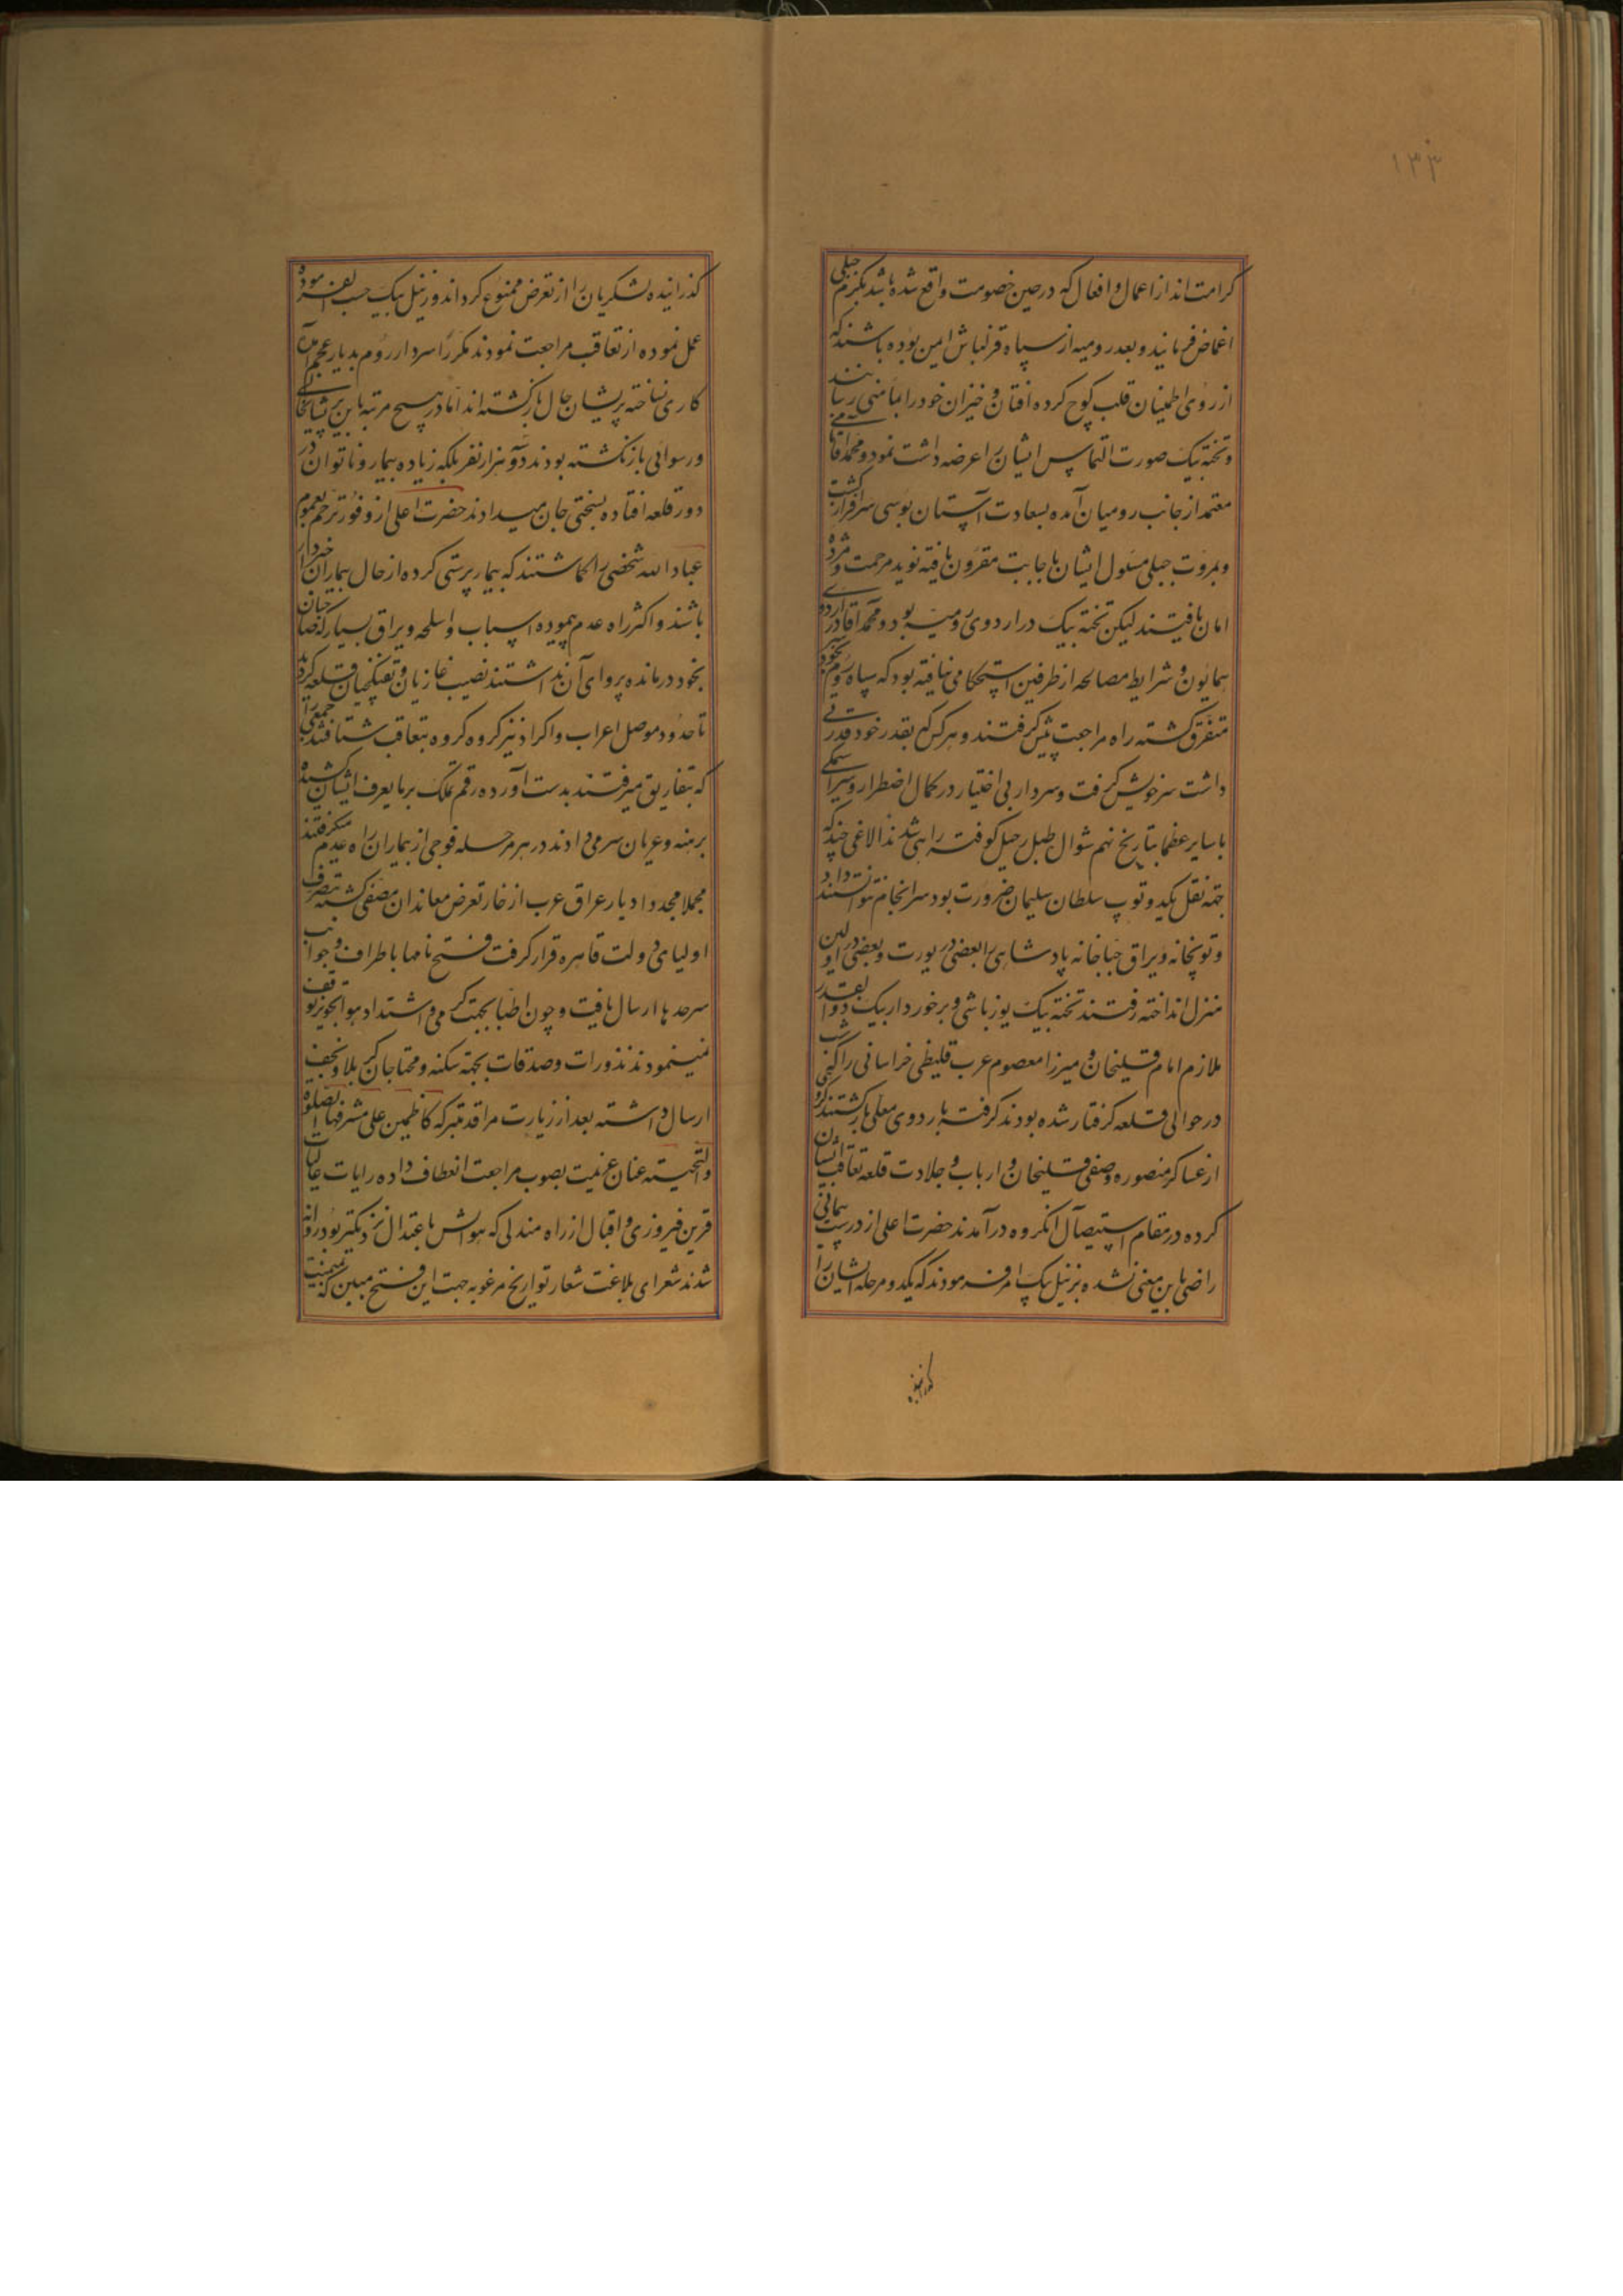 ۱۳۳
کرامت اند از اعمال و افعال که در حین خصومت واقع شده باشد بکرم جبلی
اغماض فرمایند و بعد رومیه از سپاه قزلباش امین بوده باشند که
از روی اطمینان قلب کوچ کرده افتان و خیزان خود را بمأمنی رسانند
و تخته بیک صورت التماس ایشان را عرضه داشت نمود و محمد آقا
معتمد از جانب رومیان آمده بسعادت آستان بوسی سرافراز گشت
و بمروت جبلی مسئول ایشان باجابت مقرون یافته نوید مرحمت و مژده
امان یافتند لیکن تخته بیک در اردوی رومیه بود و محمد آقا در اردوی
همایون و شرایط مصالحه از طرفین استحکامی نیافته بود که سپاه روم بخود
متفرق گشته راه مراجعت پیش گرفتند و هر کس بقدر خود قدرتی
داشت سر خویش گرفت و سردار بی اختیار در کمال اضطرار و سراسیمکی
با سایر عظما بتاریخ نهم شوال طبل رحیل کوفته راهی شدند الاغی چند که
جهة نقل یکدو توپ سلطان سلیمان ضرورت بود سرانجام نتوانستند داد
و توپخانه و یراق جباخانه پادشاهی را بعضی در یورت و بعضی در اولین
منزل انداخته رفتند تخته بیک یوزباشی و برخوردار بیک ذوالقدر
ملازم امام قلیخان و میرزا معصوم عرب خراسانی را که شب
در حوالی قلعه گرفتار شده بودند گرفته باردوی معلی بازگشتند گروهی
از عساکر منصوره و صفی قلیخان و ارباب جلادت قلعه تعاقب ایشان
کرده در مقام استیصال آنگروه درآمدند حضرت اعلی از درست پیمانی
راضی باین معنی نشده بزینل بیک امر فرمودند که یکدو مرحله ایشان را
گذرانیده
گذرانیده لشکریان را از تعرض ممنوع گرداند و زینل بیک حسب الفرموده
عمل نموده از تعاقب مراجعت نمودند مکررا سردار روم بدیار عجم آمده
کاری نساخته پریشان حال بازگشته اند اما در هیچ مرتبه باین پریشانحالی
و رسوائی بازنگشته بودند دو هزار نفر بلکه زیاده بیمار و ناتوان در
دور قلعه افتاده بسختی جان میدادند حضرت اعلی از وفور ترحم بعموم
عباد الله شخصی را گماشتند که بیمار پرستی کرده از حال بیماران خبردار
باشند و اکثر راه عدم پیموده اسباب و اسلحه و یراق بسیار که صاحبان
بخود درمانده پروای آن نداشتند نصیب غازیان و تفنگچیان قلعه گردید
تا حدود موصل اعراب و اکراد نیز گروه گروه بتعاقب شتافتند جمعی را
که بتفاریق میرفتند بدست آورده رقم تملک بر مایعرف ایشان کشیده
برهنه و عریان سر می دادند در هر مرحله فوجی از بیماران راه عدم میگرفتند
مجملا مجددا دیار عراق عرب از خار تعرض معاندان مصفی گشته بتصرف
اولیای دولت قاهره قرار گرفت فتح نامها باطراف و جوانب
سرحدها ارسال یافت و چون اطبا بجهت گرمی و اشتداد هوا تجویز توقف
نمینمودند نذورات و صدقات بجهة سکنه و محتاجان کربلا و نجف
ارسال داشته بعد از زیارت مراقد متبرکه کاظمین علی مشرفها الصلوة
والتحیة عنان عزیمت بصوب مراجعت انعطاف داده رایات عالیات
قرین فیروزی و اقبال از راه مندلی که هوایش باعتدال نزدیکتر بود روانه
شدند شعرای بلاغت شعار تواریخ مرغوبه جهت این فتح مبین که بمیمنت